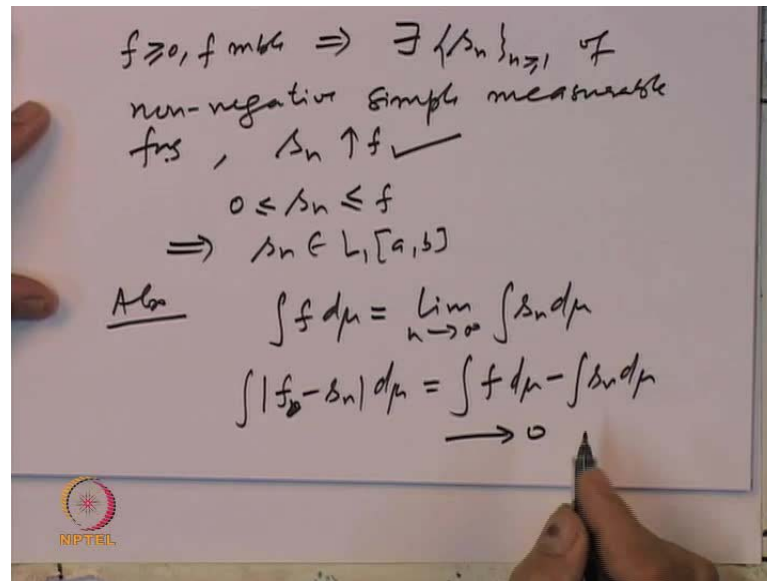 f ≥ 0, f mble ⇒ ∃ {sₙ}ₙ≥₁ of
non-negative simple measurable
fns, sₙ ↑ f ✓
0 ≤ sₙ ≤ f
⇒ sₙ ∈ L₁[a,b]
Also ∫ f dμ = lim n→∞ ∫ sₙ dμ
∫ |f - sₙ| dμ = ∫ f dμ - ∫ sₙ dμ
→ 0
NPTEL